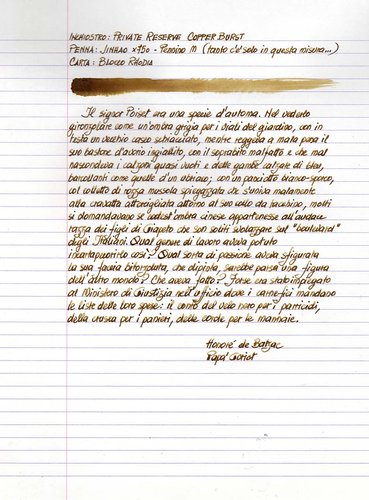 INCHIOSTRO: PRIVATE RESERVE COPPER BURST
PENNA: JINHAO X450 - Pennino M (tanto c'è solo in questa misura...)
CARTA: BLOCCO RHODIA
Il signor Poiret era una specie d'automa. Nel vederlo
gironzolare come un'ombra grigia per i viali del giardino, con in
testa un vecchio casco schiacciato, mentre reggeva a mala pena il
suo bastone d'avorio ingiallito, con il soprabito malfatto e che mal
nascondeva i calzoni quasi vuoti e delle gambe calzate di blu,
barcollanti come quelle d'un ubriaco; con un panciotto bianco-sporco,
col colletto di rozza mussola spiegazzata che s'univa malamente
alla cravatta attorcigliata attorno al suo collo da tacchino, molti
si domandavano se codest'ombra cinese appartenesse all'audace
razza dei figli di Giapeto che son soliti svolazzare sul "boulevard"
degli Italiani. Qual genere di lavoro aveva potuto
incartapecorirlo così? Qual sorta di passione aveva sfigurata
la sua faccia bitorzoluta, che dipinta, sarebbe parsa una figura
dell'altro mondo? Che aveva fatto? Forse era stato impiegato
al Ministero di Giustizia nell'ufficio dove i carnefici mandano
le liste delle loro spese: il conto del velo nero per i parricidi,
della crusca per i panieri, delle corde per le mannaie.
Honoré de Balzac
Papà Goriot